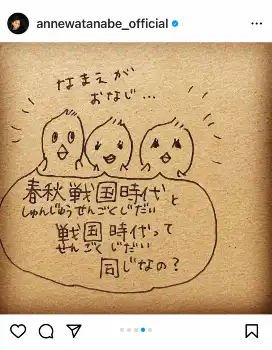 annewatanabe_official
なまえが
おなじ...
春秋戦国時代と
しゅんじゅうせんごくじだい
戦国時代って
せんごくじだい
同じなの?